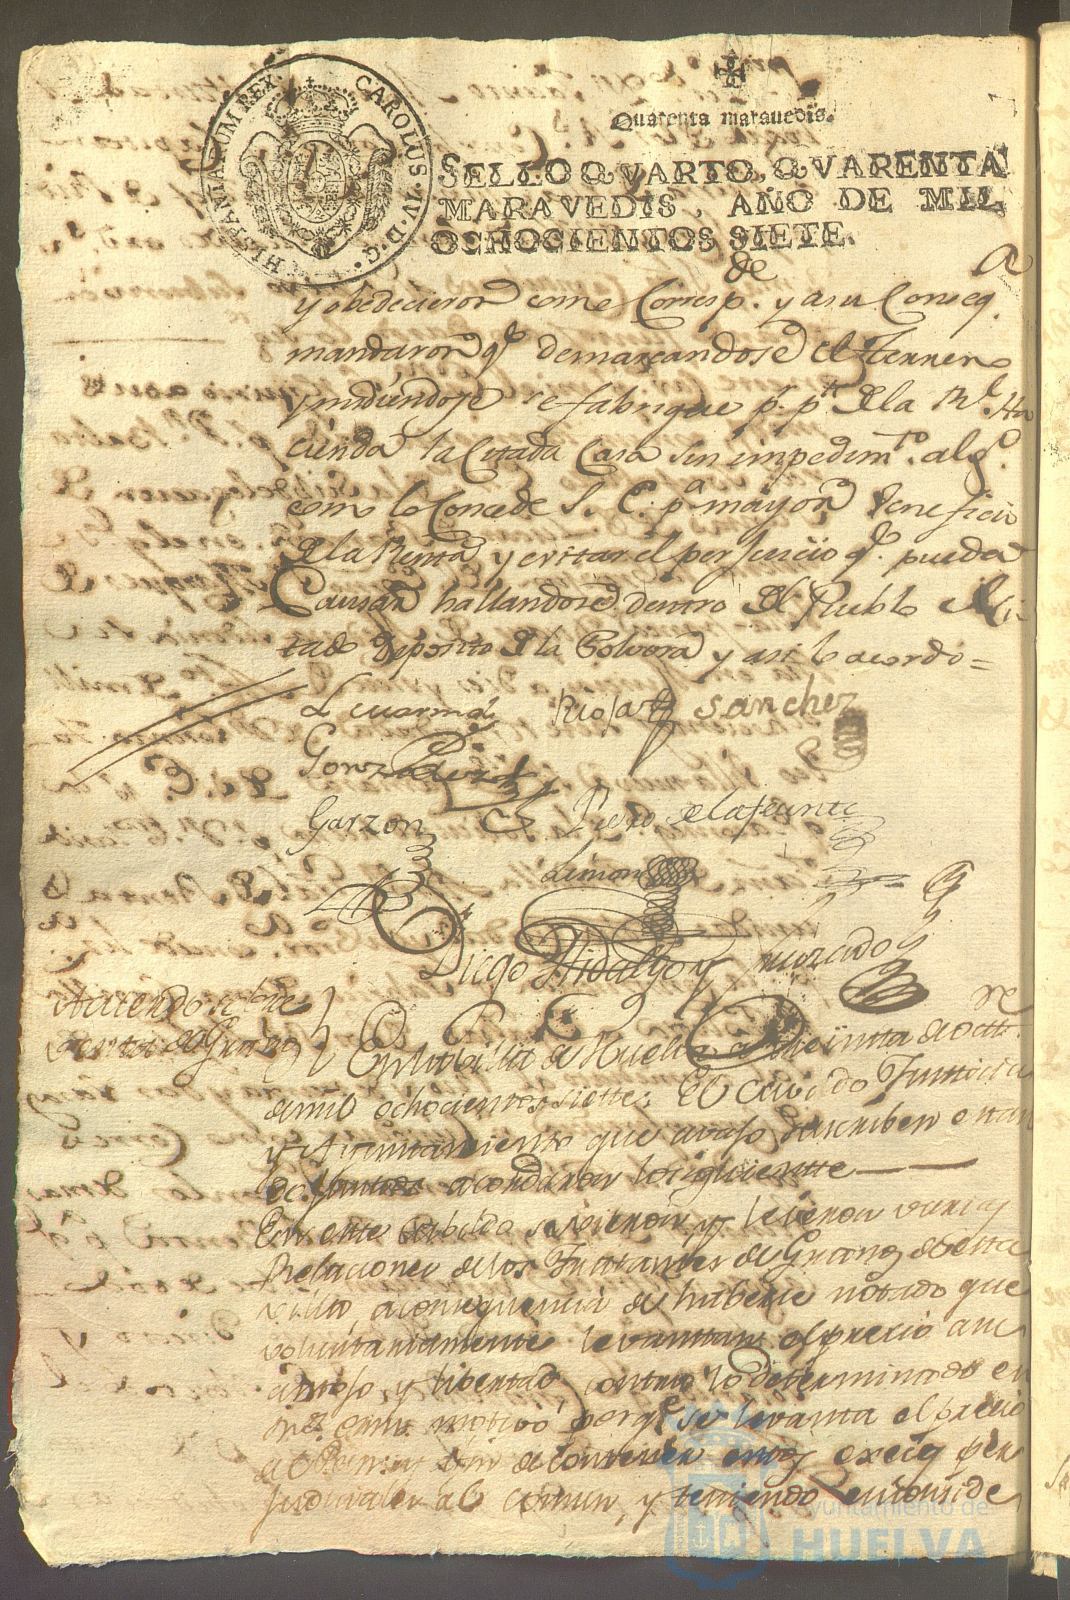 CAROLUS IV D. G. HISPANIARUM REX
Quarenta maravedis.
SELLO QVARTO, QVARENTA
MARAVEDIS, AÑO DE MIL
OCHOCIENTOS SIETE.
y obedecieron como Corresp.de y a su Conseq.a
mandaron q.e demarcandose el Terreno
y midiendose se fabrique p.r p.te de la R.l Ha
cienda la Citada Casa sin impedim.to alg.o
como lo Concede S. E. p.a mayor beneficio
de la Renta y evitar el perjuicio q.e pueda
Causar hallandose dentro del Pueblo el Ci
tado Deposito de la Polvora y asi lo acordo =
Sanchez
Gonz
Garzon
Pedro de la Fuente
Limon
Diego Hidalgo y Mercado
Acuerdo sobre
venta de Granos
En la Villa de Huelva a treinta de oct.re
de mil ochocientos siete. El Cavildo Justicia
y Ayuntamiento que avajo suscriben estan
do juntos acordaron lo siguiente
En este Cabildo se vieron y leyeron varias
Relaciones de los Tratantes de Granos de esta
villa a consequencia de haberse notado que
voluntariamente levantan el precio a su
antojo y libertad contra lo determinado en
motivo porq.e se levanta el precio
perjudiciales al comun, y teniendo
Ayuntamiento de
HUELVA